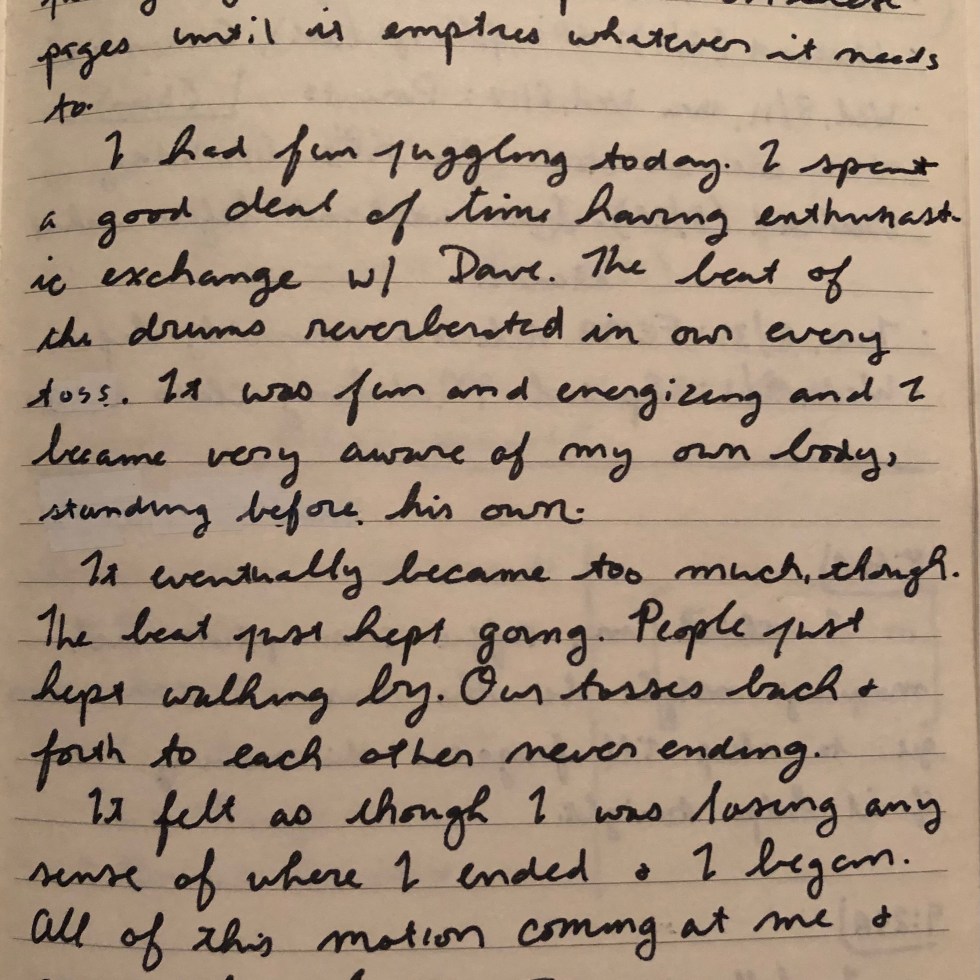 pages until it empties whatever it needs
to.
I had fun juggling today. I spent
a good deal of time having enthusiast-
ic exchange w/ Dave. The beat of
the drums reverberated in our every
toss. It was fun and energizing and I
became very aware of my own body,
standing before his own.
It eventually became too much, though.
The beat just kept going. People just
kept walking by. Our tosses back &
forth to each other never ending.
It felt as though I was losing any
sense of where I ended & I began.
All of this motion coming at me &